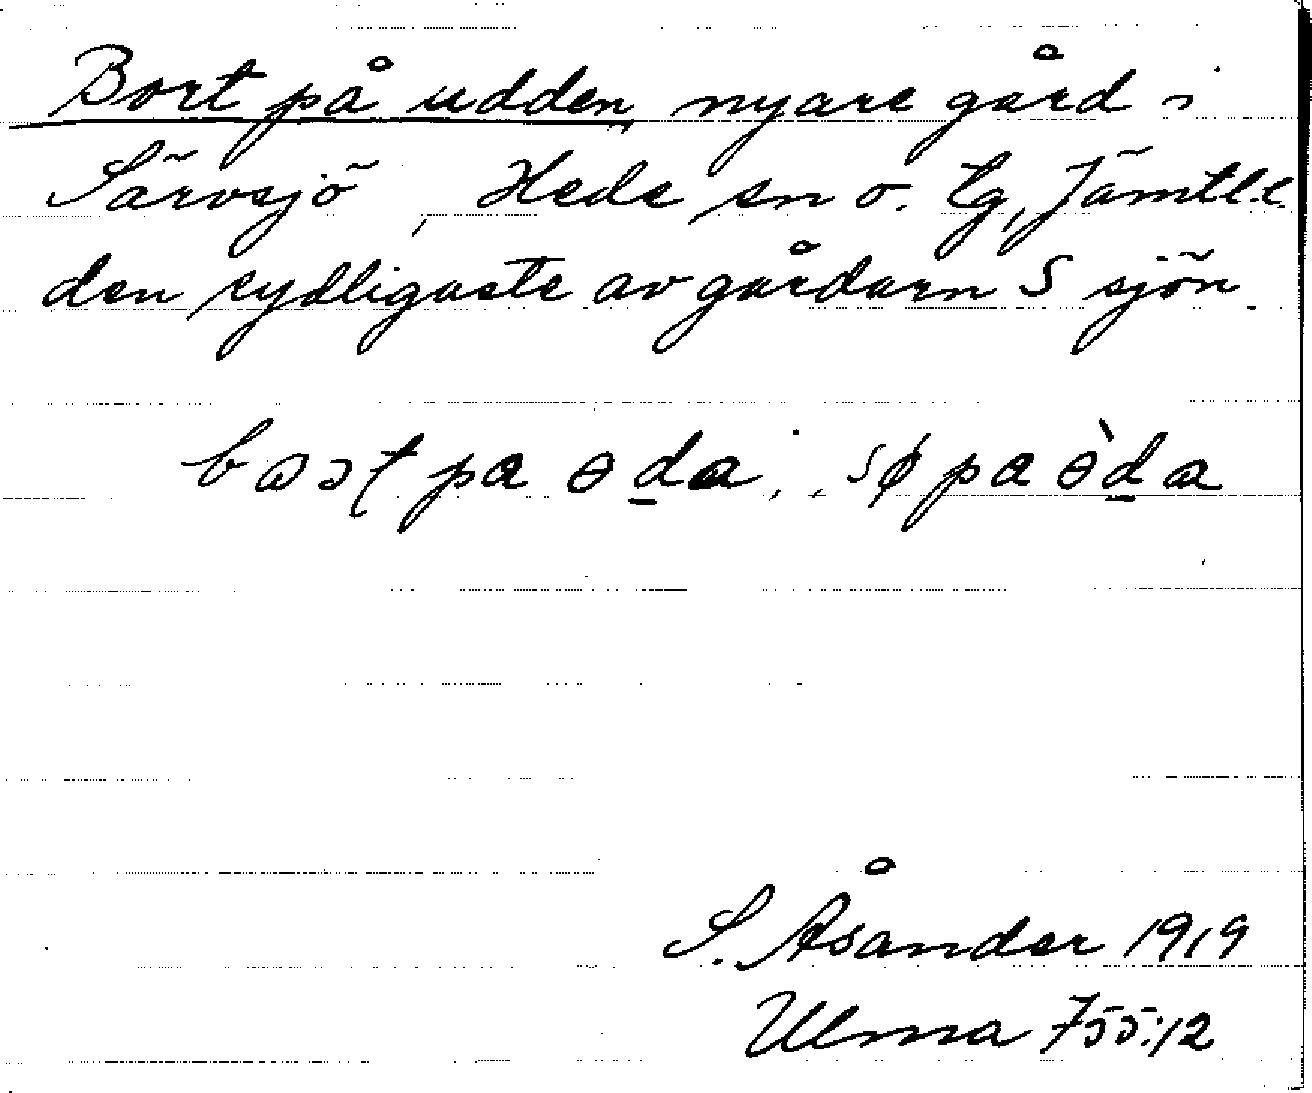 Bort på udden, nyare gård i
Särvsjö, Hede sn o. tg, Jämtl.l.
den sydligaste av gårdarn S sjön.
bort pa ɵda, sø pa ɵ̀da
S. Åsander 1919
Ulma 755:12